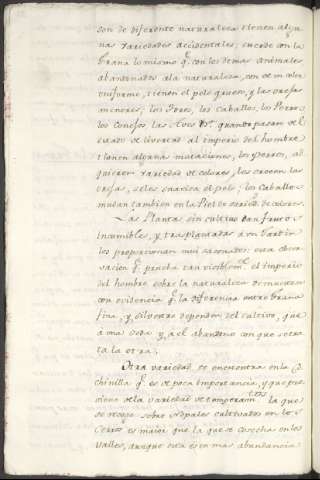 son de diferente naturaleza tienen algu-
nas variedades accidentales, sucede con la
Grana lo mismo q.e con los demas Animales
abandonados ala naturaleza, con color
uniforme, tienen el pelo grueso, y las orejas
menores, los Toros, los Caballos, los Perros
los Conejos, las Aves &.a quando pasan del
estado de livertad al imperio del hombre
tienen algunas mutaciones, los perros, ad-
quieren variedad de colores, les crecen las
orejas, seles suaviza el pelo; los Caballos
mudan tambien en la Piel de variedad de colores.
Las Plantas sin cultivo dan fruto
incomible, y trasplantadas à un Jardin
los proporcionan mui sazonados: esta obser-
vacion q.e prueba tan visiblem.te el imperio
del hombre sobre la naturaleza demuestra
con evidencia q.e la diferencia entre Grana
fina, y silvestre dependen del cultivo, que
à una seda y, a el abandono con que se tra-
ta la otra.
Otra variedad se encuentra en la Co-
chinilla q.e es de poca importancia, y que pro-
viene de la variedad de temperam.tos la que
se recoge sobre Nopales cultivados en los
Cerros es maior que la que se cosecha en los
Valles, aunque esta es en mas abundancia